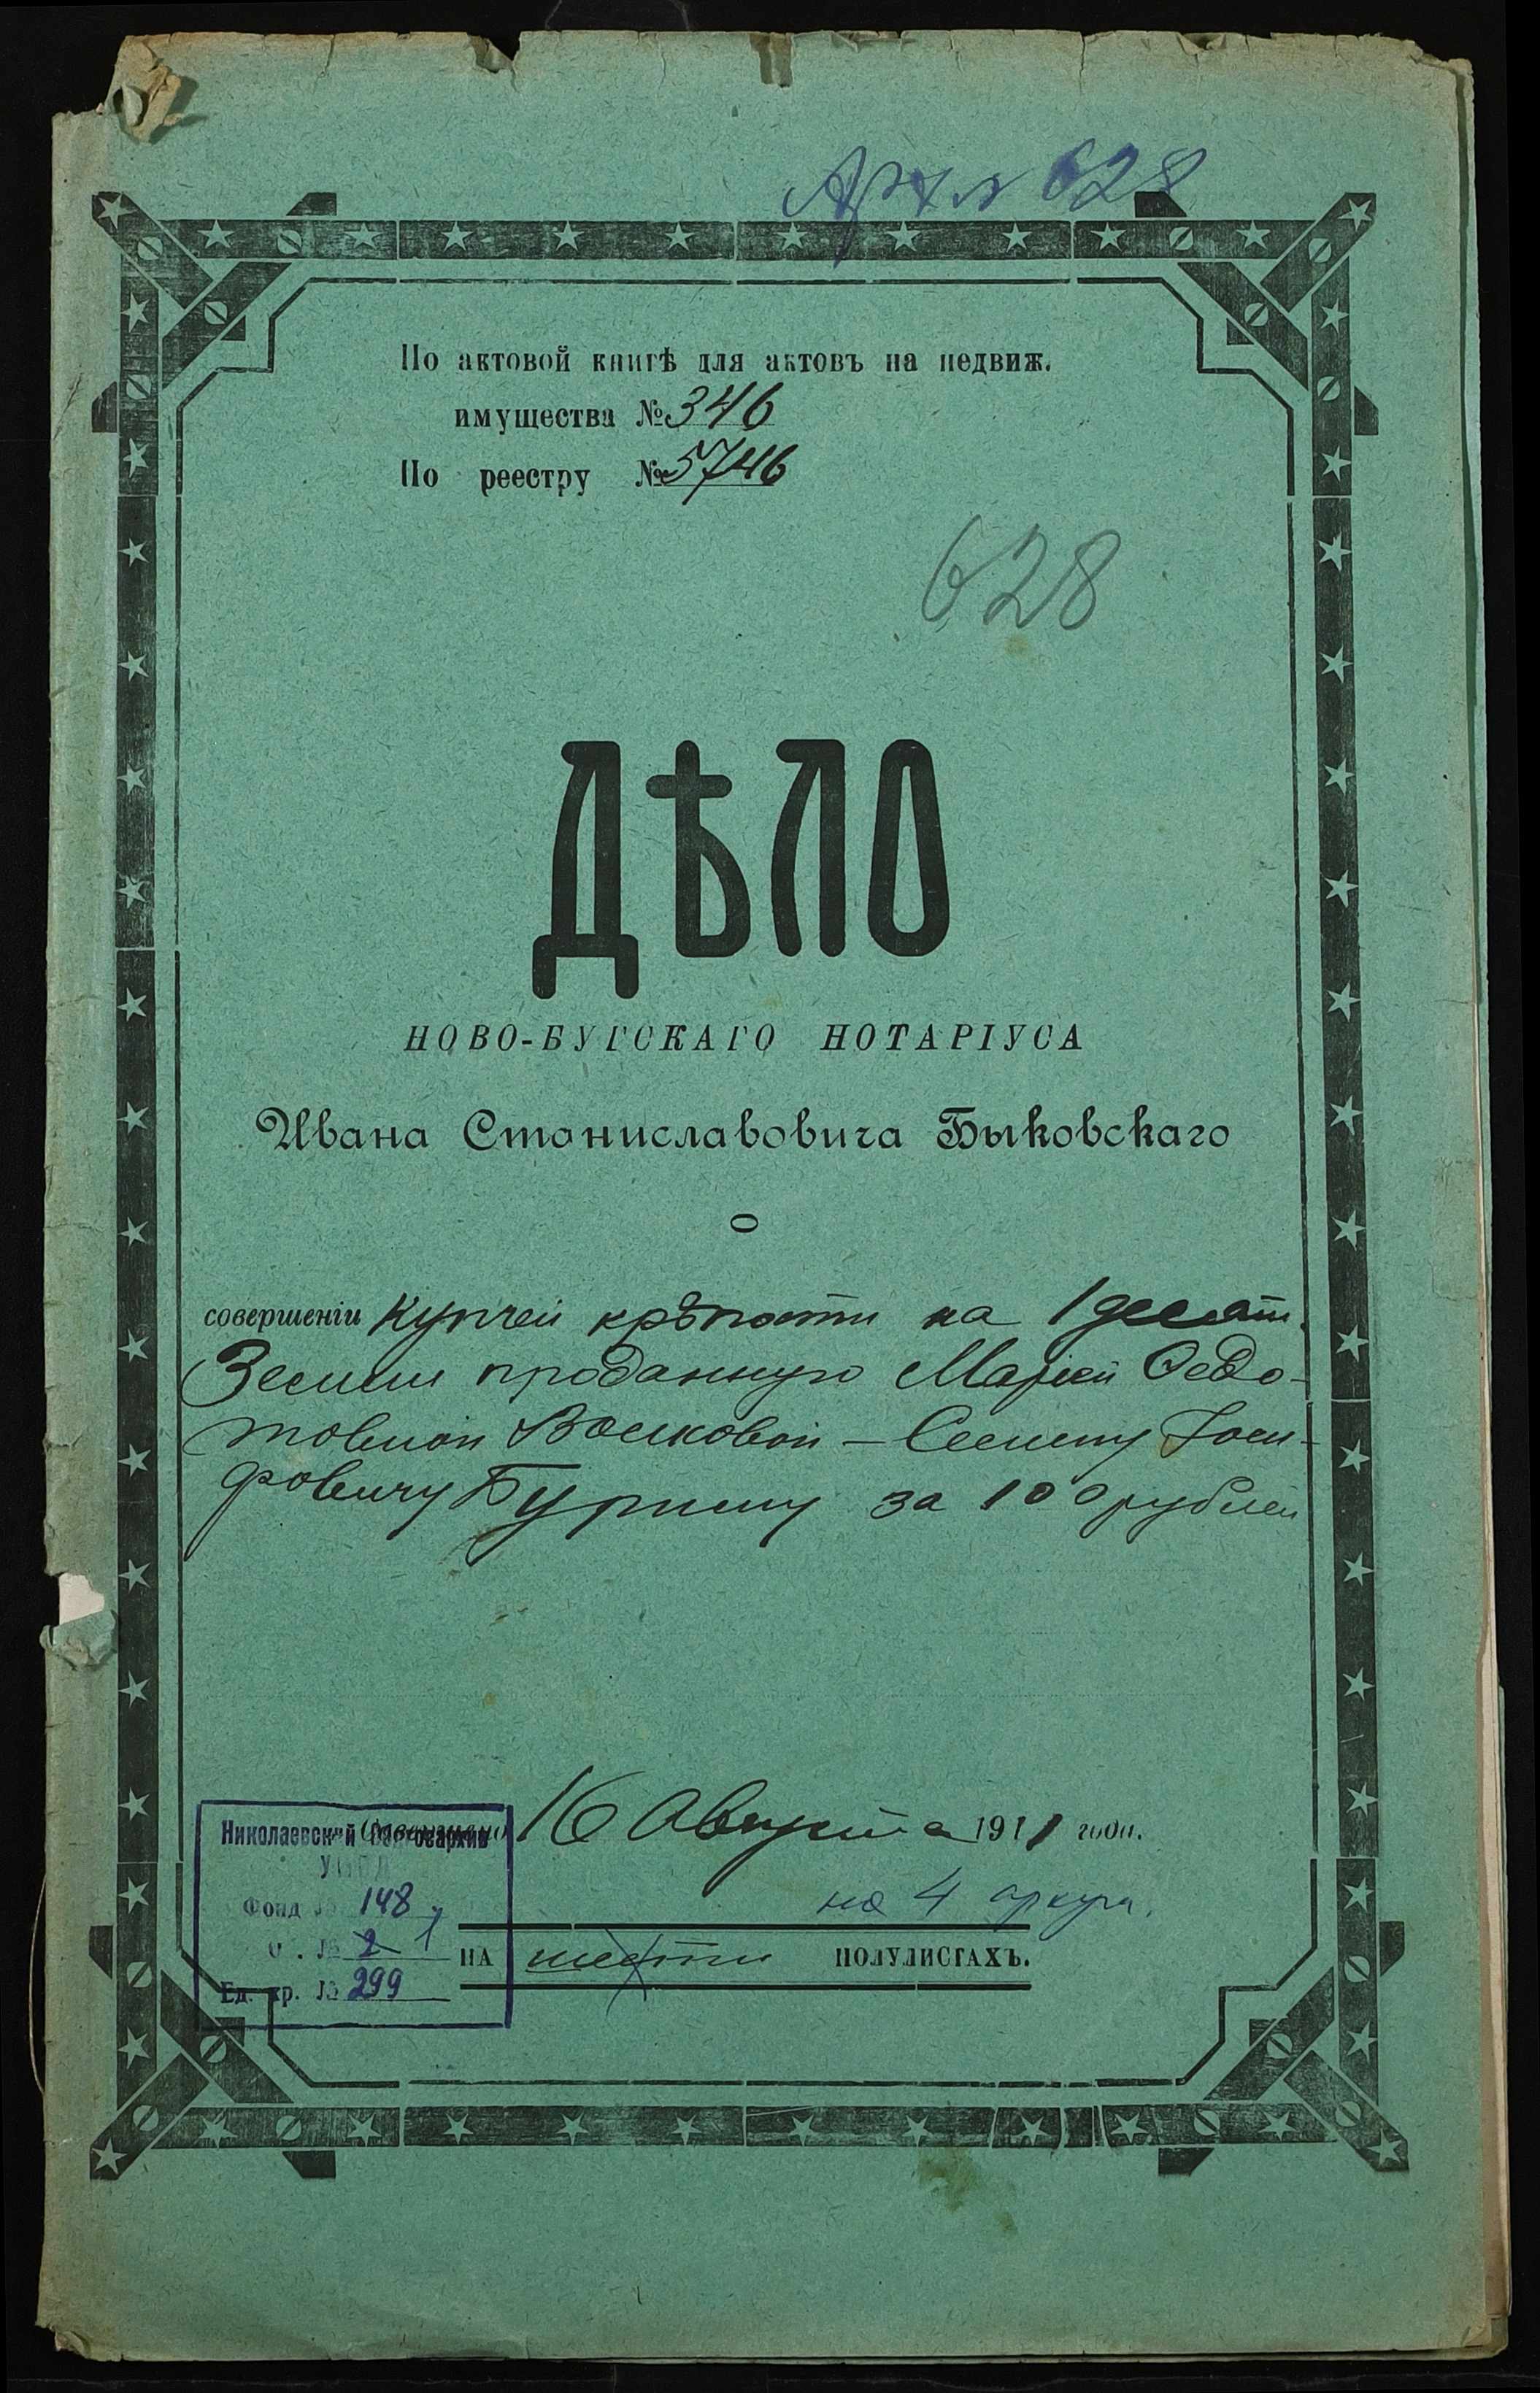 Арх № 628
По актовой книгѣ для актовъ на недвиж.
имущества № 346
По реестру № 5746
628
ДѢЛО
НОВО-БУГСКАГО НОТАРІУСА
Ивана Станиславовича Быковскаго
О
совершеніи купчей крѣпости на 1 десят.
Земли проданную Маріей Ѳедо-
товной Волковой – Семену Іоси-
фовичу Буркину за 100 рублей
Совершено 16 Августа 1911 года.
Николаевский Облгосархив
Фонд № 148
О . № 2 1
Ед. хр. № 299
на 4 аркуш.
НА шести ПОЛУЛИСТАХЪ.